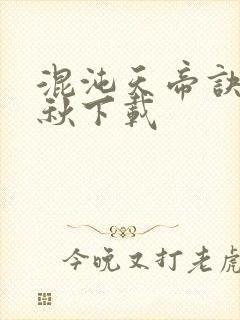 混沌天帝訣
秋下載
今晚又打老虎